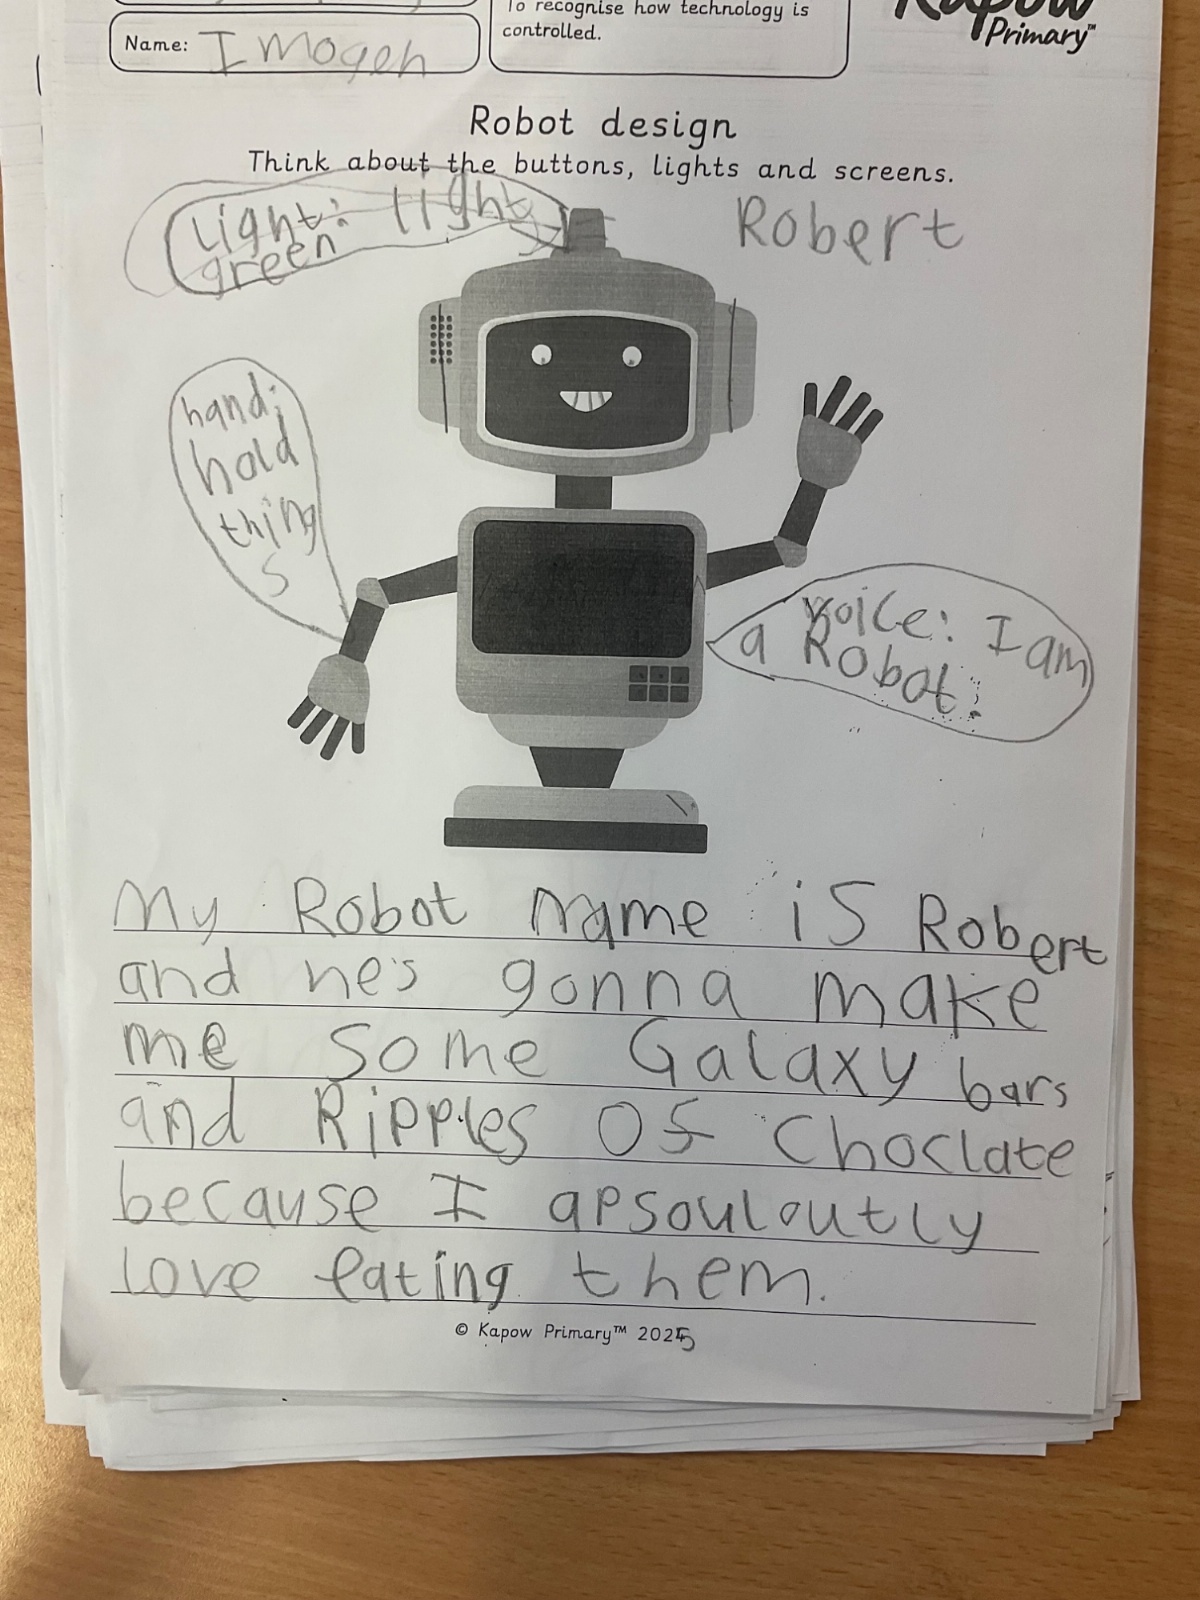 To recognise how technology is
controlled.
Kapow
Primary™
Name: Imogen
Robot design
Think about the buttons, lights and screens.
Light: light
green
Robert
hand:
hold
thing
s
voice: I am
a Robot!
My Robot name is Robert
and he's gonna make
me some Galaxy bars
and Ripples OF Choclate
because I apsouloutly
love eating them.
© Kapow Primary™ 2025